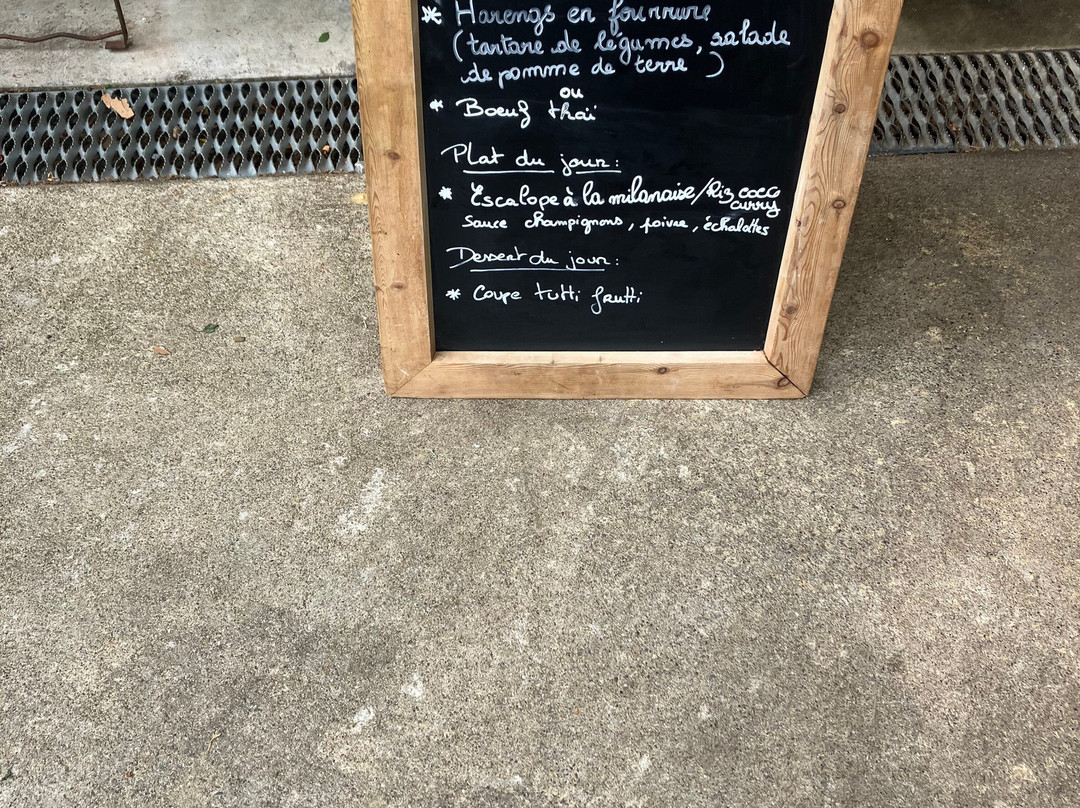 * Harengs en fourrure
(tartare de légumes, salade
de pomme de terre )
ou
* Boeuf thaï
Plat du jour :
* Escalope à la milanaise/Riz coco
curry
Sauce champignons, poivre, échalottes
Dessert du jour :
* Coupe tutti frutti